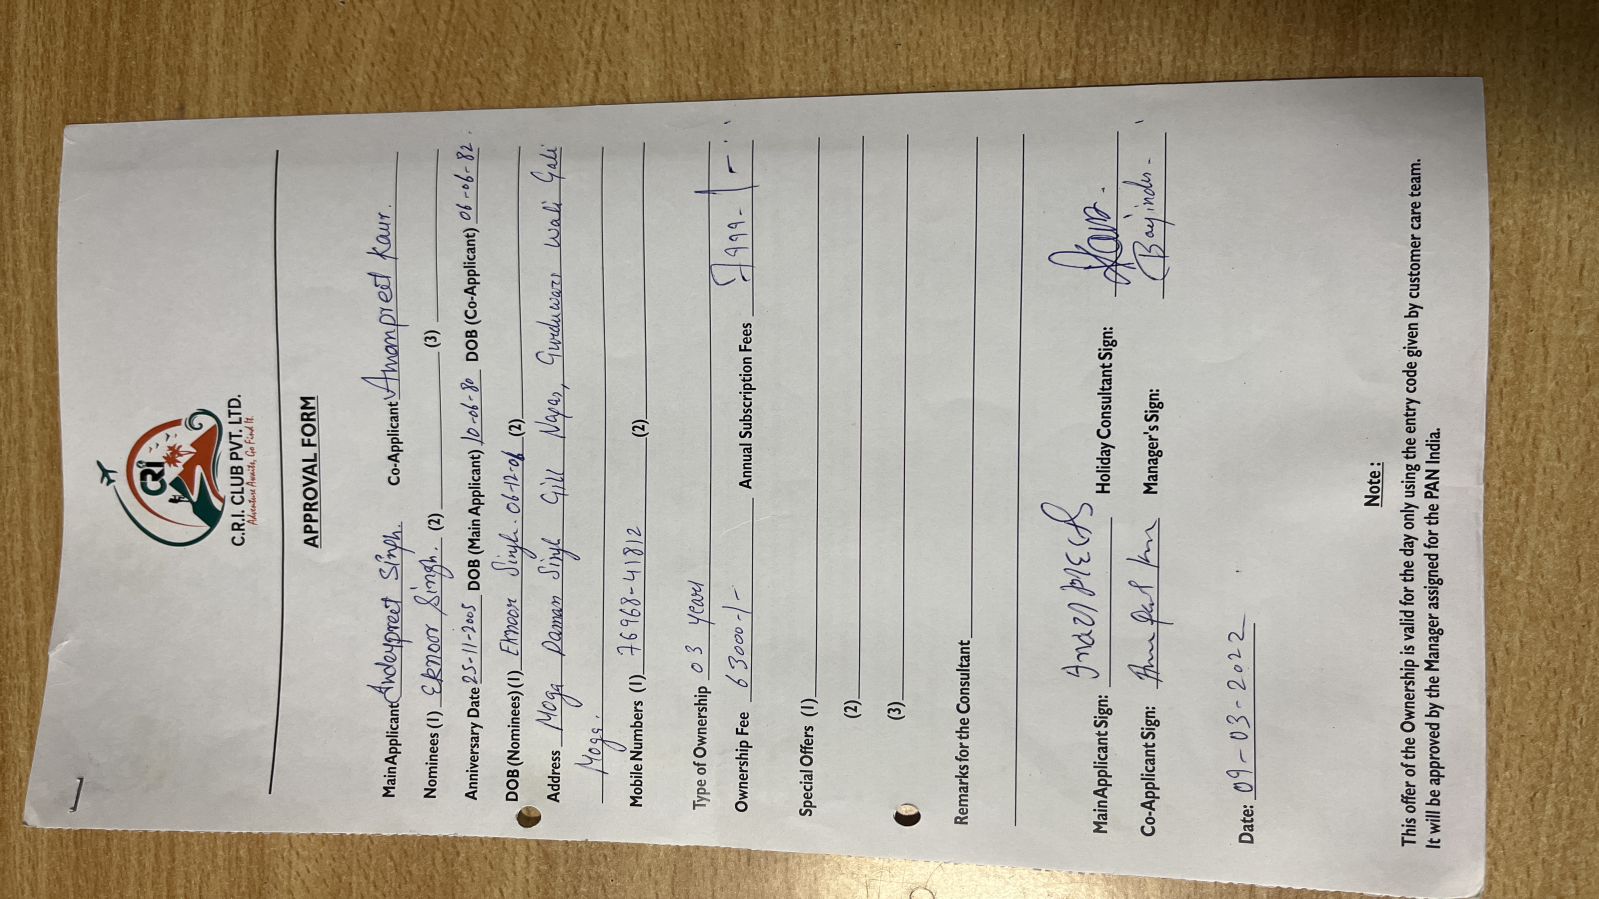 CRI
C.R.I. CLUB PVT. LTD.
Adventure Awaits, Go Find It.
APPROVAL FORM
Main Applicant Inderpreet Singh. Co-Applicant Amanpreet Kaur.
Nominees (1) Eknoor Singh. (2) (3)
Anniversary Date 25-11-2005 DOB (Main Applicant) 10-06-80 DOB (Co-Applicant) 06-06-82.
DOB (Nominees) (1) Eknoor Singh. 06-12-06 (2)
Address Moga Daman Singh Gill Nagar, Gurduwara Wali Gali
Moga.
Mobile Numbers (1) 76968-41812 (2)
Type of Ownership 03 years
Ownership Fee 63000-/- Annual Subscription Fees 7999-/-
Special Offers (1)
(2)
(3)
Remarks for the Consultant
Main Applicant Sign: Holiday Consultant Sign:
Co-Applicant Sign: Manager's Sign:
Date: 09-03-2022
Note :
This offer of the Ownership is valid for the day only using the entry code given by customer care team.
It will be approved by the Manager assigned for the PAN India.